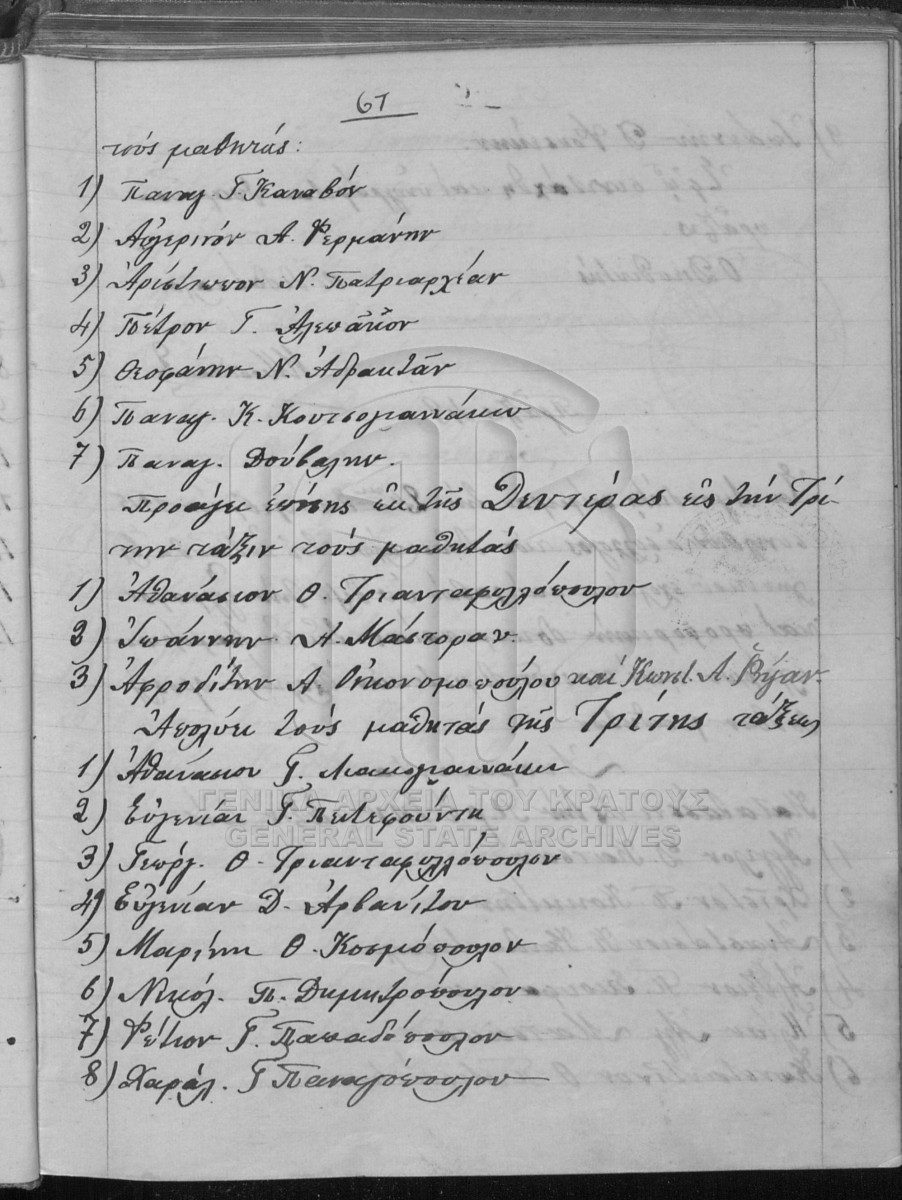 67
τούς μαθητάς:
1) Παναγ Γ. Καναβόν
2) Αὐγερινόν Α. Φερμάνην
3) Ἀρίστιππον Ν. Πατριαρχέαν
4) Πέτρον Γ. Ἀλεπᾶκον
5) Θεοφάνην Ν. Ἀδρακτᾶν
6) Παναγ. Κ. Κουτσογιαννάκην
7) Παναγ. Δούβαλην.
Προάγει ἐπίσης ἐκ τῆς Δευτέρας εἰς τήν Τρί-
την τάξιν τούς μαθητάς
1) Ἀθανάσιον Θ. Τριανταφυλλόπουλον
2) Ἰωάννην Α. Μάστοραν.
3) Ἀφροδίτην Α. Οἰκονομοπούλου καί Κωνστ. Α.
Ἀπολύει τούς μαθητάς τῆς Τρίτης τάξεως
1) Ἀθανάσιον Γ. Λιακογιαννάκην
2) Εὐγενίαν Γ.
ΓΕΝΙΚΑ ΑΡΧΕΙΑ ΤΟΥ ΚΡΑΤΟΥΣ
GENERAL STATE ARCHIVES
3) Γεώργ. Θ. Τριανταφυλλόπουλον
4) Εὐγενίαν Δ. Ἀρβανίτου
5) Μαρίνην Θ. Κοσμόπουλον
6) Νικόλ. Π. Δημητρόπουλον
7) Φώτιον Γ. Παπαδόπουλον
8) Χαράλ. Γ Παναγόπουλον